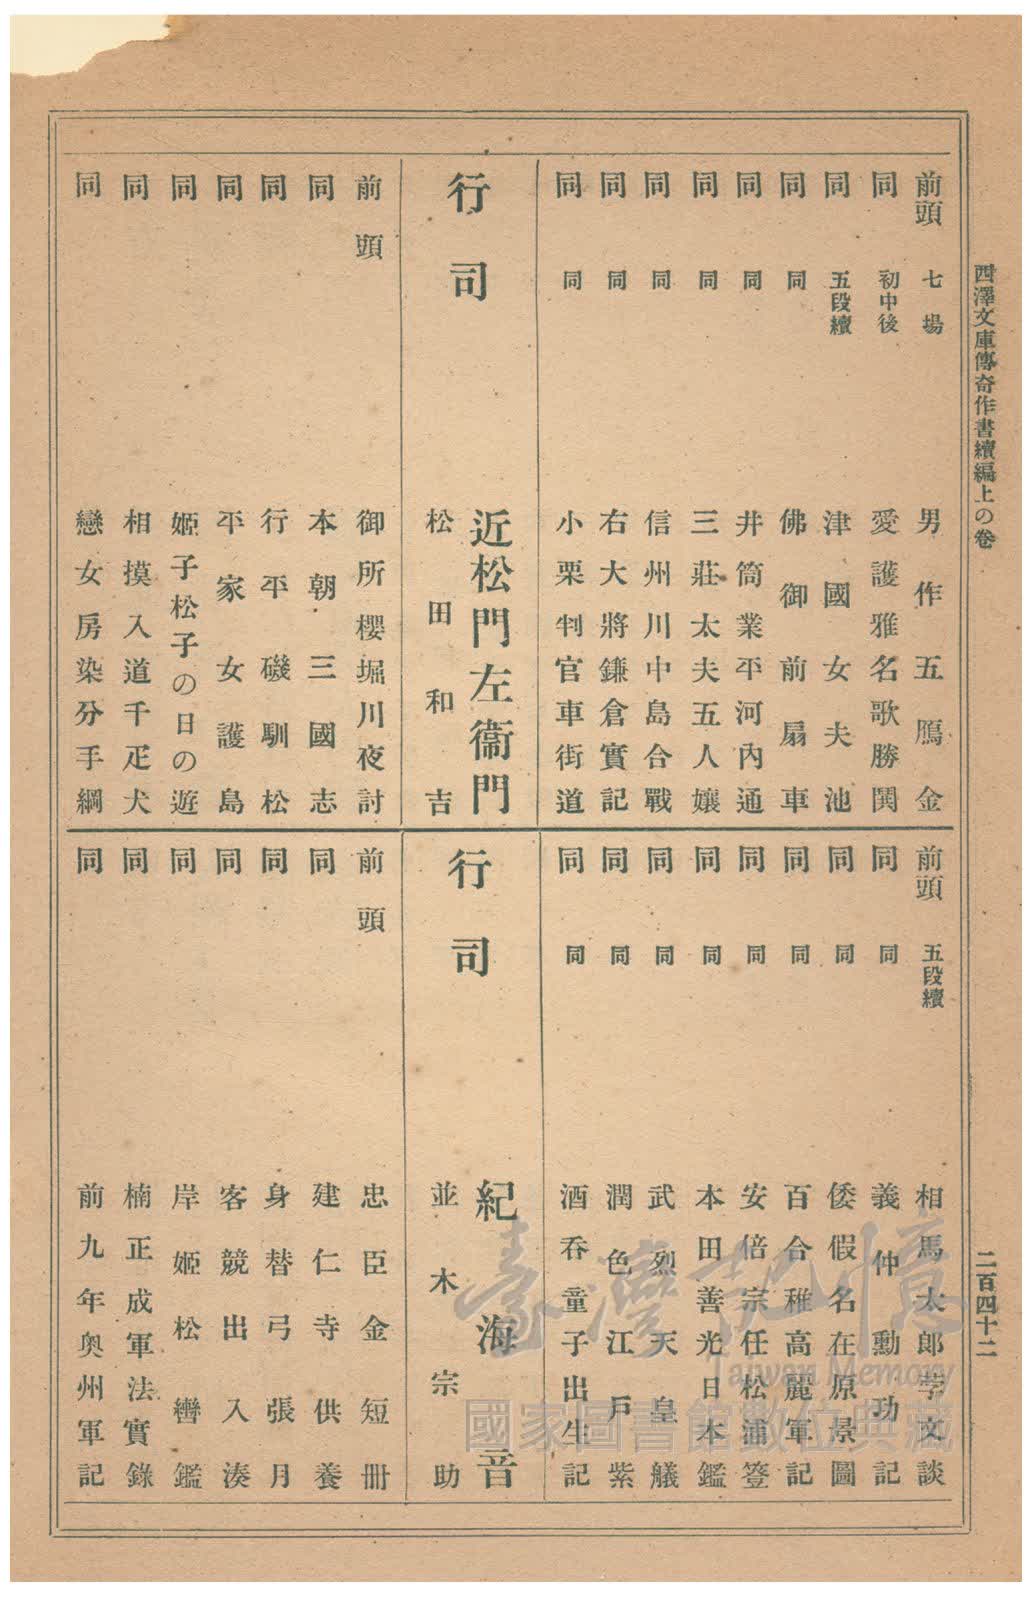 西澤文庫傳奇作書續編上の卷
二百四十二
前頭 七場 男作五鴈金
同 初中後 愛護雅名歌勝鬨
同 五段續 津國女夫池
同 同 佛御前扇車
同 同 井筒業平河內通
同 同 三莊太夫五人孃
同 同 信州川中島合戰
同 同 右大將鎌倉實記
同 同 小栗判官車街道
行司 近松門左衞門
松田和吉
前頭 御所櫻堀川夜討
同 本朝三國志
同 行平磯馴松
同 平家女護島
同 姬子松子の日の遊
同 相摸入道千疋犬
同 戀女房染分手綱
前頭 五段續 相馬太郎孛文談
同 同 義仲勳功記
同 同 倭假名在原景圖
同 同 百合稚高麗軍記
同 同 安倍宗任松浦簦
同 同 本田善光日本鑑
同 同 武烈天皇艤
同 同 潤色江戶紫
同 同 酒呑童子出生記
行司 紀海音
並木宗助
前頭 忠臣金短冊
同 建仁寺供養
同 身替弓張月
同 客競出入湊
同 岸姬松轡鑑
同 楠正成軍法實錄
同 前九年奥州軍記
臺灣記憶
Taiwan Memory
國家圖書館數位典藏